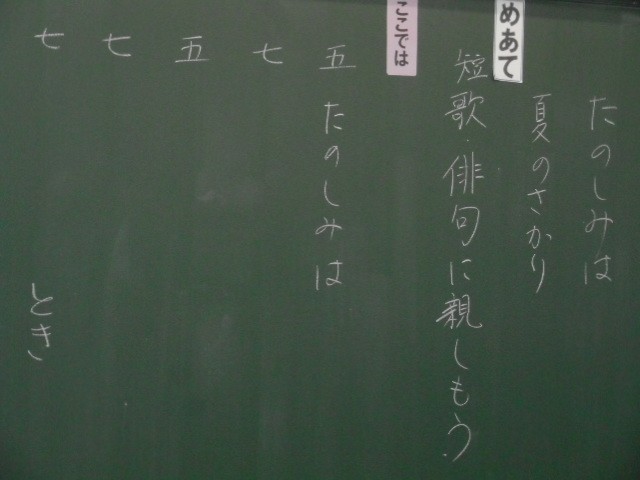 たのしみは
夏のさかり
めあて
短歌・俳句に親しもう。
ここでは
五 たのしみは
七
五
七
七 とき